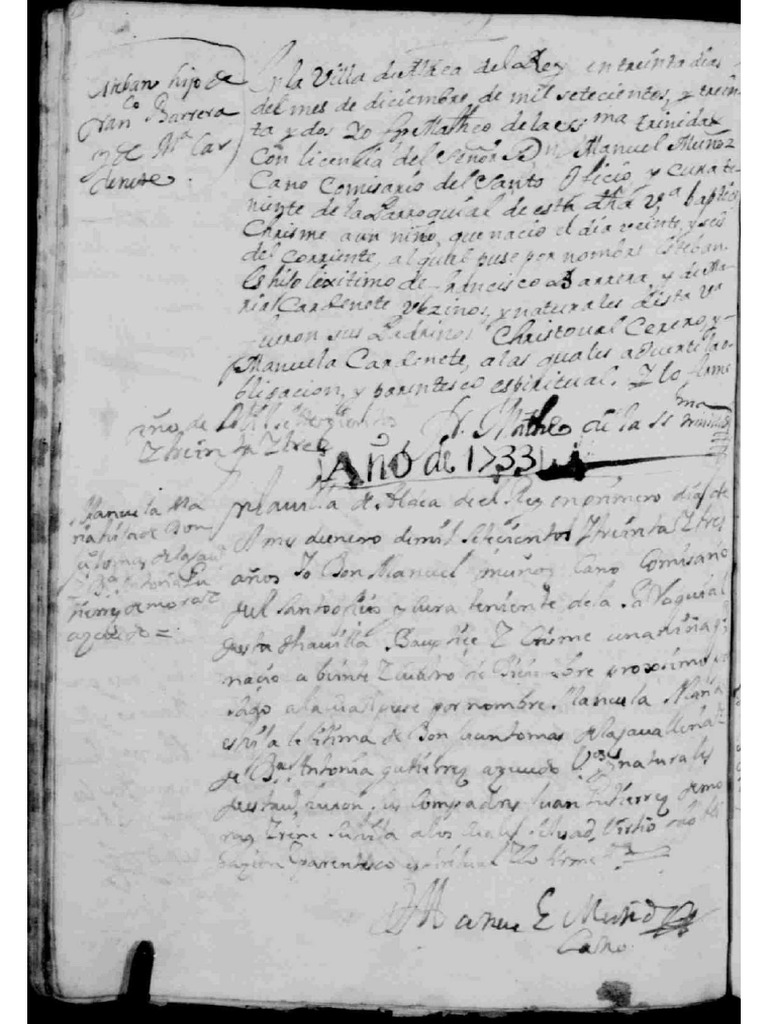 Esteban hijo de
Fran.co Barrera
y de M.a Car
denete.
En la Villa de Alaca del Rey en treinta dias
del mes de diciembre, de mil setecientos, y trein-
ta y dos Yo Fr. Matheo de la SSma trinidad
Con licencia del Señor Dn Manuel Muñoz
Cano Comisario del Santo Oficio y cura te-
niente de la Parroquial de esta dha Va baptice
Chrisme a un niño, que nacio el dia veinte, y seis
del corriente, al qual puse por nombre Esteban
Es hijo lexitimo de Francisco Barrera, y de Ma-
ria Cardenete Vezinos, y naturales desta Va
fueron sus Padrinos Christoval Cerero, y
Manuela Cardenete, a las quales adverti la o-
bligacion, y parentesco espiritual. Y lo firme
Fr. Matheo de la SSma trinidad
año de mil setezientos
Ztreinta Ztres
Año de 1733
Manuela Ma
ria hija de Don
Juo tomas de la
Da Antonia Gu
tierrez de
azevedo =
En la villa de Alaca del Rey en primero dia de
mes de enero de mil setecientos Ztreinta Ztres
años Yo Don Manuel muños Cano Comisario
del Santo oficio y Cura teniente de la Paroquial
desta dha villa Bauptice Z Crisme una niña q
nacio a beinte Z cuatro de Diciembre proximo pa
sado a la cual puse por nombre Manuela Maria
es hija lexitima de Don Juan tomas de la
de Da Antonia gutierrez azevedo Vos y naturales
desta va fueron sus Compadres Juan Gutierrez de mo
a los cuales
gacion Z parentesco espiritual Z lo firme
Manuel Muñoz
Cano